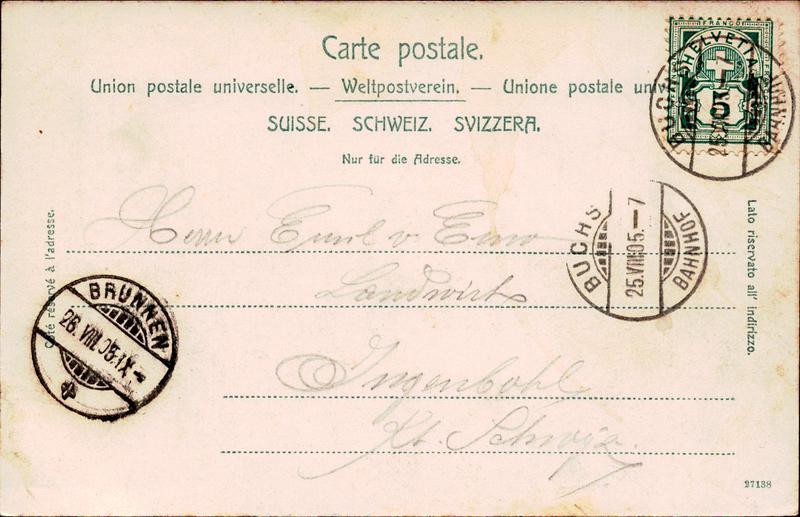 Carte postale.
Union postale universelle. — Weltpostverein. — Unione postale univ
SUISSE. SCHWEIZ. SVIZZERA.
Nur für die Adresse.
FRANCO
HELVETIA
5
BUCHS
25.VIII.05.-7
BAHNHOF
BUCHS
BAHNHOF
Côté réservé à l'adresse.
Lato riservato all' indirizzo.
BRUNNEN
26.VIII.05.IX-
Herrn Emil v Euw
Landwirt
Ingenbohl
Kt. Schwyz.
27138